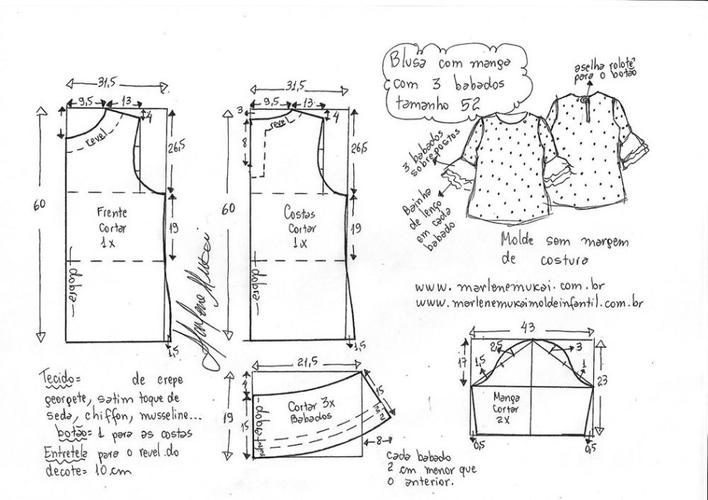 Blusa com manga
com 3 babados
tamanho 52
aselha rolotê
para o botão
3 babados
sobrepostos
Bainha
de lenço
em cada
babado
Molde sem margem
de costura
www.marlenemukai.com.br
www.marlenemukaimoldeinfantil.com.br
31,5
9,5
13
4
revel
26,5
60
Frente
Cortar
1x
19
dobra
1,5
Marlene Mukai
31,5
9,5
13
3
4
revel
8
26,5
60
Costas
Cortar
1x
19
dobra
1,5
21,5
4
19
15
dobra
Cortar 3x
Babados
15
2
2
8
Cada babado
2 cm menor que
o anterior.
43
17
2,5
3
1,5
1
23
Manga
Cortar
2x
0,5
0,5
Tecido= de crepe
georgete, satim toque de
seda, chiffon, musseline...
botão= 1 para as costas
Entretela para o revel do
decote= 10 cm